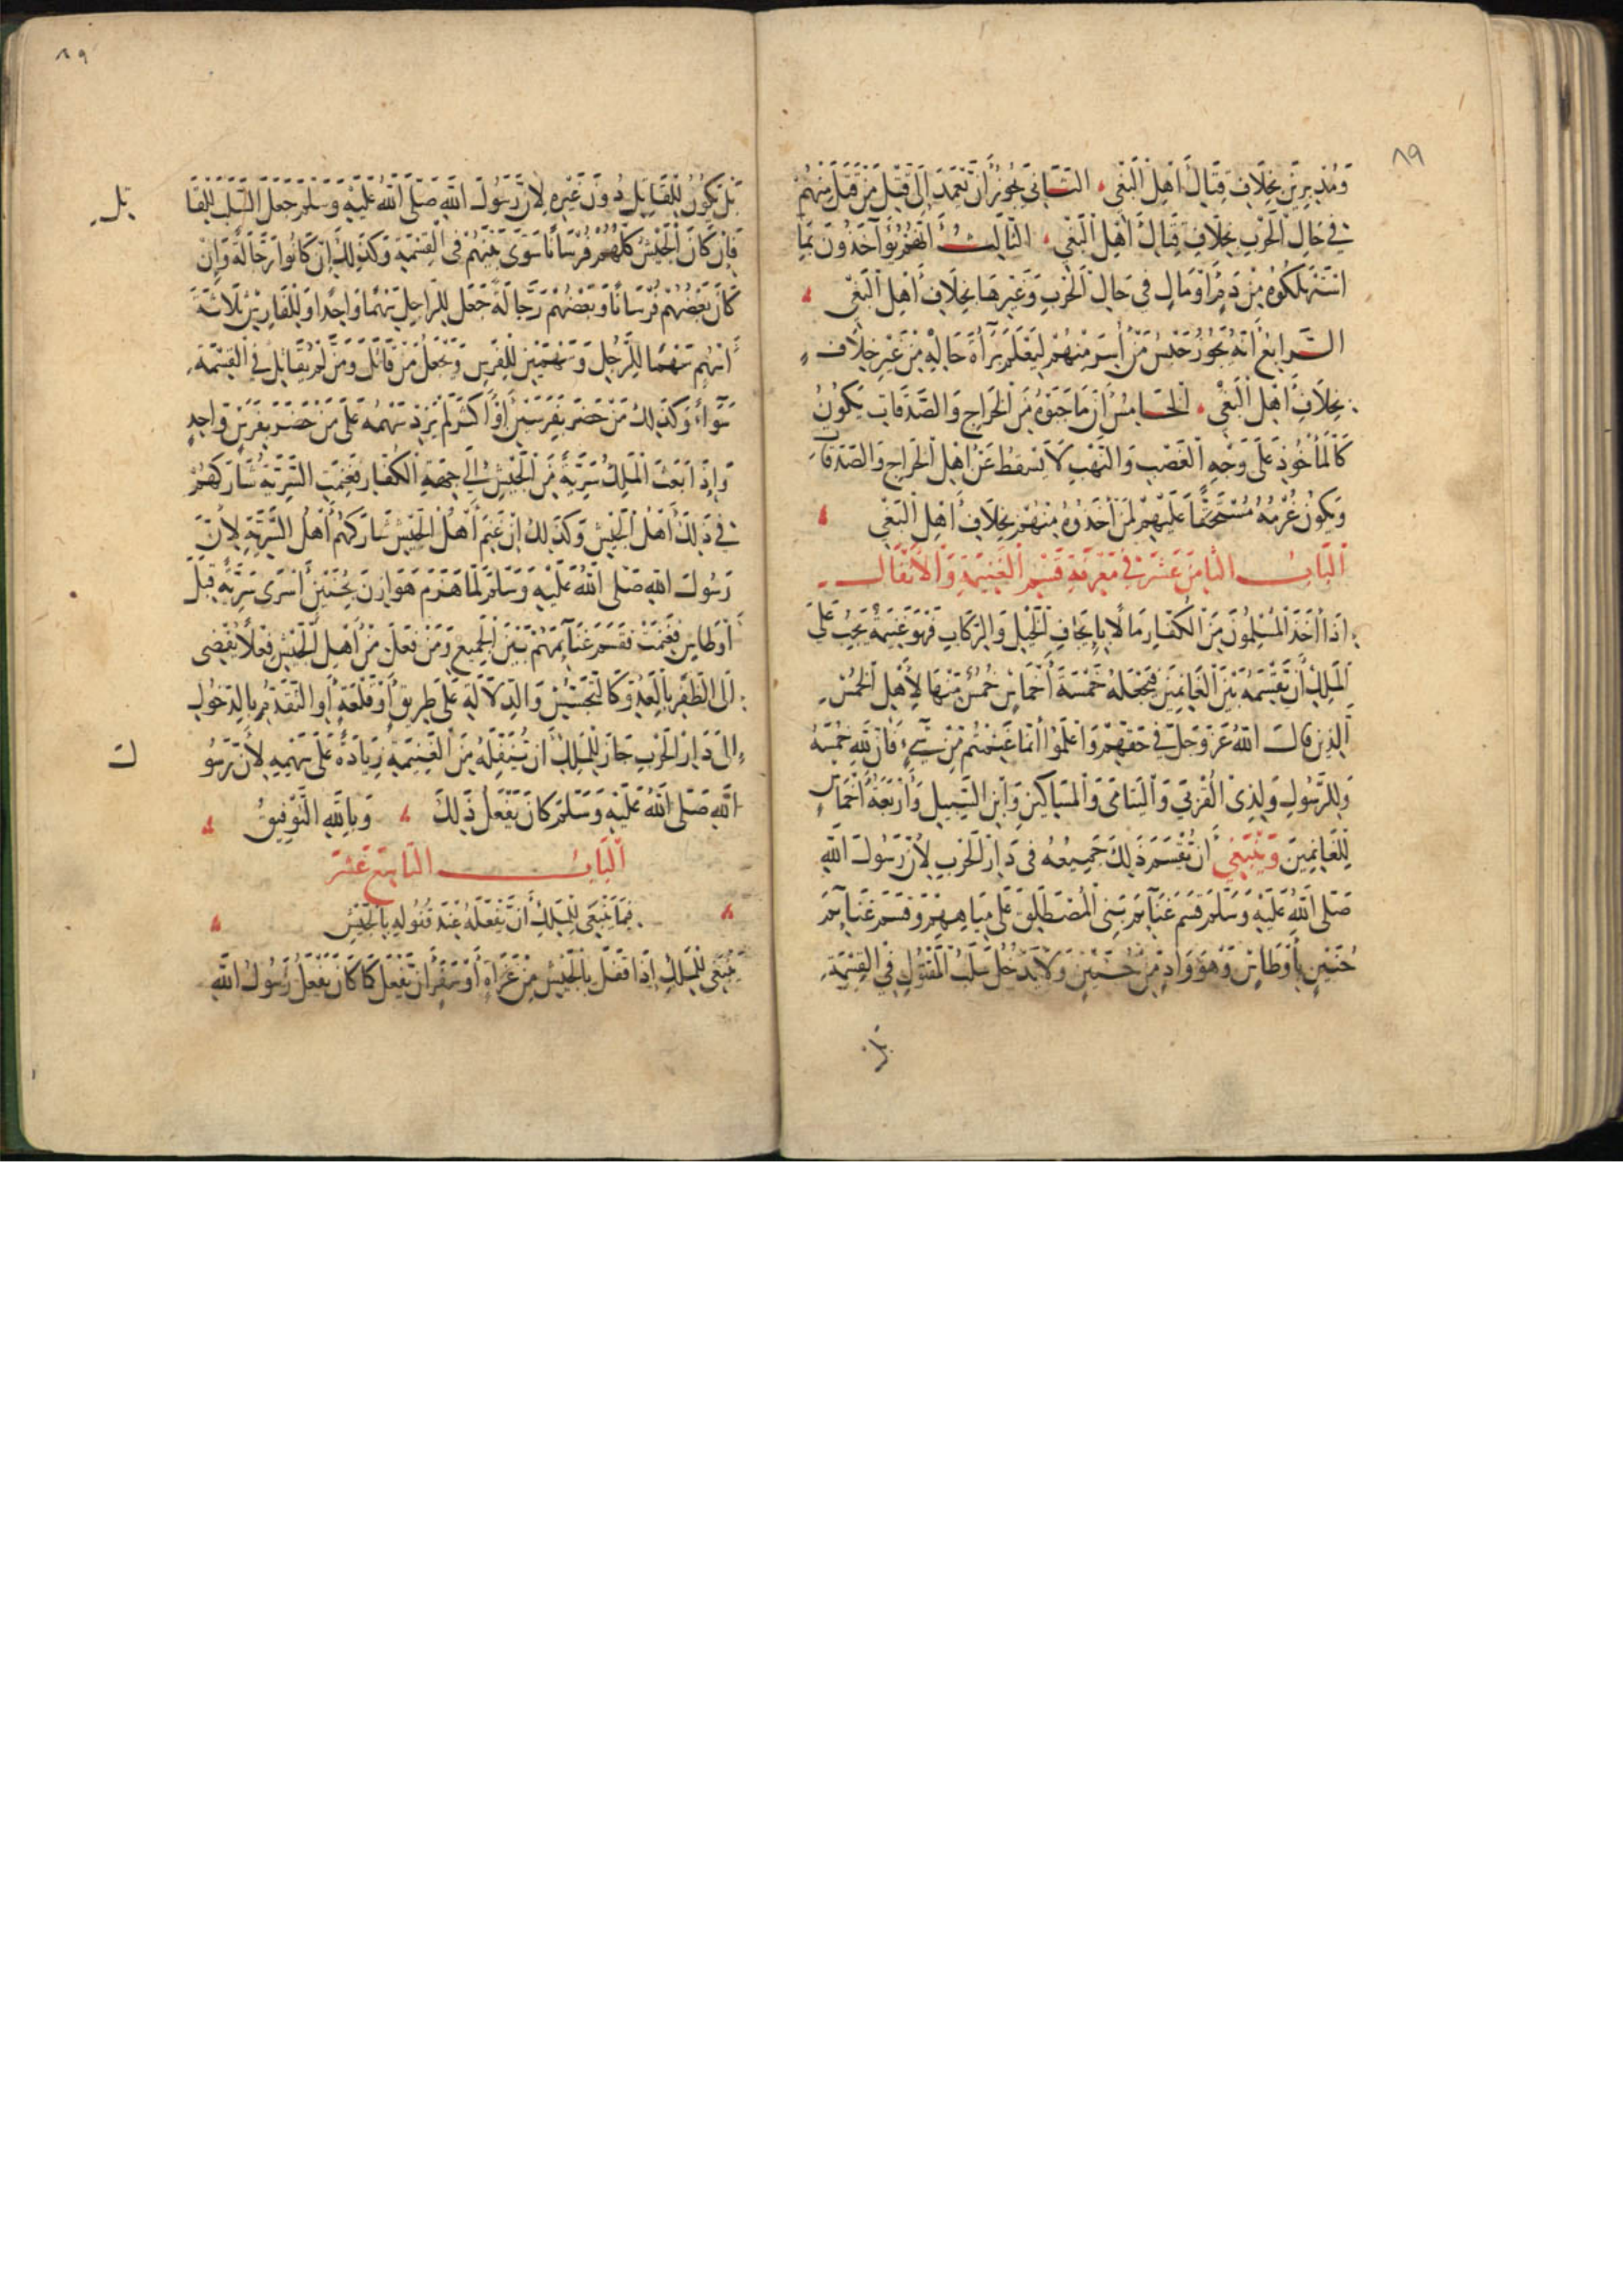 ٨٩
ومدبرين بخلاف قتال أهل البغي الثاني يجوز أن تعمد إلى قتل من قتل منهم
في حال الحرب بخلاف قتال أهل البغي الثالث أنهم يؤاخذون بما
استهلكوه من دم أو مال في حال الحرب وغيرها بخلاف أهل البغي
الرابع أنه يجوز حبس من أسر منهم ليعلم برآة حاله من غير خلاف
بخلاف أهل البغي الخامس أن ما جبوه من الخراج والصدقات يكون
كالمأخوذ على وجه الغصب والنهب لا يسقط عن أهل الخراج والصدقات
ويكون غرمه مستحقا عليهم لمن أخذوه منهم بخلاف أهل البغي
الباب الثامن عشر في معرفة قسم الغنيمة والأنفال
إذا أخذ المسلمون من الكفار مالا بإيجاف الخيل والركاب فهو غنيمة يجب على
الملك أن يقسمه بين الغانمين فيجعله خمسة أخماس خمس منها لأهل الخمس
الذين قال الله عز وجل في حقهم واعلموا أنما غنمتم من شيء فأن لله خمسه
وللرسول ولذي القربى واليتامى والمساكين وابن السبيل وأربعة أخماس
للغانمين وينبغي أن تقسم ذلك جميعه في دار الحرب لأن رسول الله
صلى الله عليه وسلم قسم غنآئم بني المصطلق على مياههم وقسم غنآئم
حنين بأوطاس وهو واد من حنين ولا يدخل سلب المقتول في القسمة
بل
٨٩
بل يكون للقاتل دون غيره لأن رسول الله صلى الله عليه وسلم جعل السلب للقا
تل
فإن كان الجيش كلهم فرسانا سوى بينهم في القسمة وكذلك إن كانوا رجالة وإن
كان بعضهم فرسانا وبعضهم رجالة جعل للراجل سهما واحدا وللفارس ثلاثة
أسهم سهما للرجل وسهمين للفرس وتجعل من قاتل ومن لم يقاتل في القسمة
سواء وكذلك من حضر بفرسين أو أكثر لم يزد سهمه على من حضر بفرس واحد
وإذا بعث الملك سرية من الجيش إلى جهة الكفار فغنمت السرية شاركهم
في ذلك أهل الجيش وكذلك إن غنم أهل الجيش شاركهم أهل السرية لأن
رسول الله صلى الله عليه وسلم لما هزم هوازن بحنين أسرى سرية قبل
أوطاس فغنمت فقسم غنآئمهم بين الجميع ومن فعل من أهل الجيش فعلا يفضي
إلى الظفر بالعدو كالتجسيس والدلالة على طريق أو قلعة أو التقدم بالدخول
إلى دار الحرب جاز للملك أن ينفله من الغنيمة زيادة على سهمه لأن رسو
ل
الله صلى الله عليه وسلم كان يفعل ذلك وبالله التوفيق
الباب التاسع عشر
فيما ينبغي للملك أن يفعله عند قفوله بالجيش
ينبغي للملك إذا قفل بالجيش من غزاة أو سفر أن يفعل كما كان يفعل رسول الله